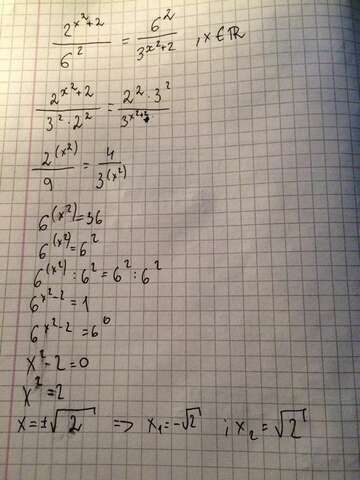 2^(x²+2) / 6² = 6² / 3^(x²+2) , x ∈ ℝ
2^(x²+2) / (3² · 2²) = (2² · 3²) / 3^(x²+2)
2^(x²) / 9 = 4 / 3^(x²)
6^(x²) = 36
6^(x²) = 6²
6^(x²) : 6² = 6² : 6²
6^(x²-2) = 1
6^(x²-2) = 6⁰
x² - 2 = 0
x² = 2
x = ±√2 => x₁ = -√2 ; x₂ = √2